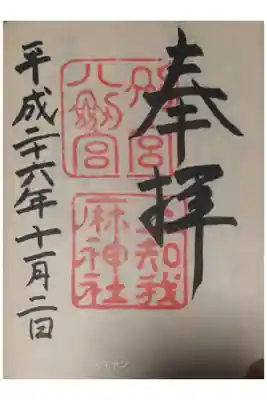 奉拝
別宮
八剣宮
上知我
麻神社
平成二十六年十一月二日